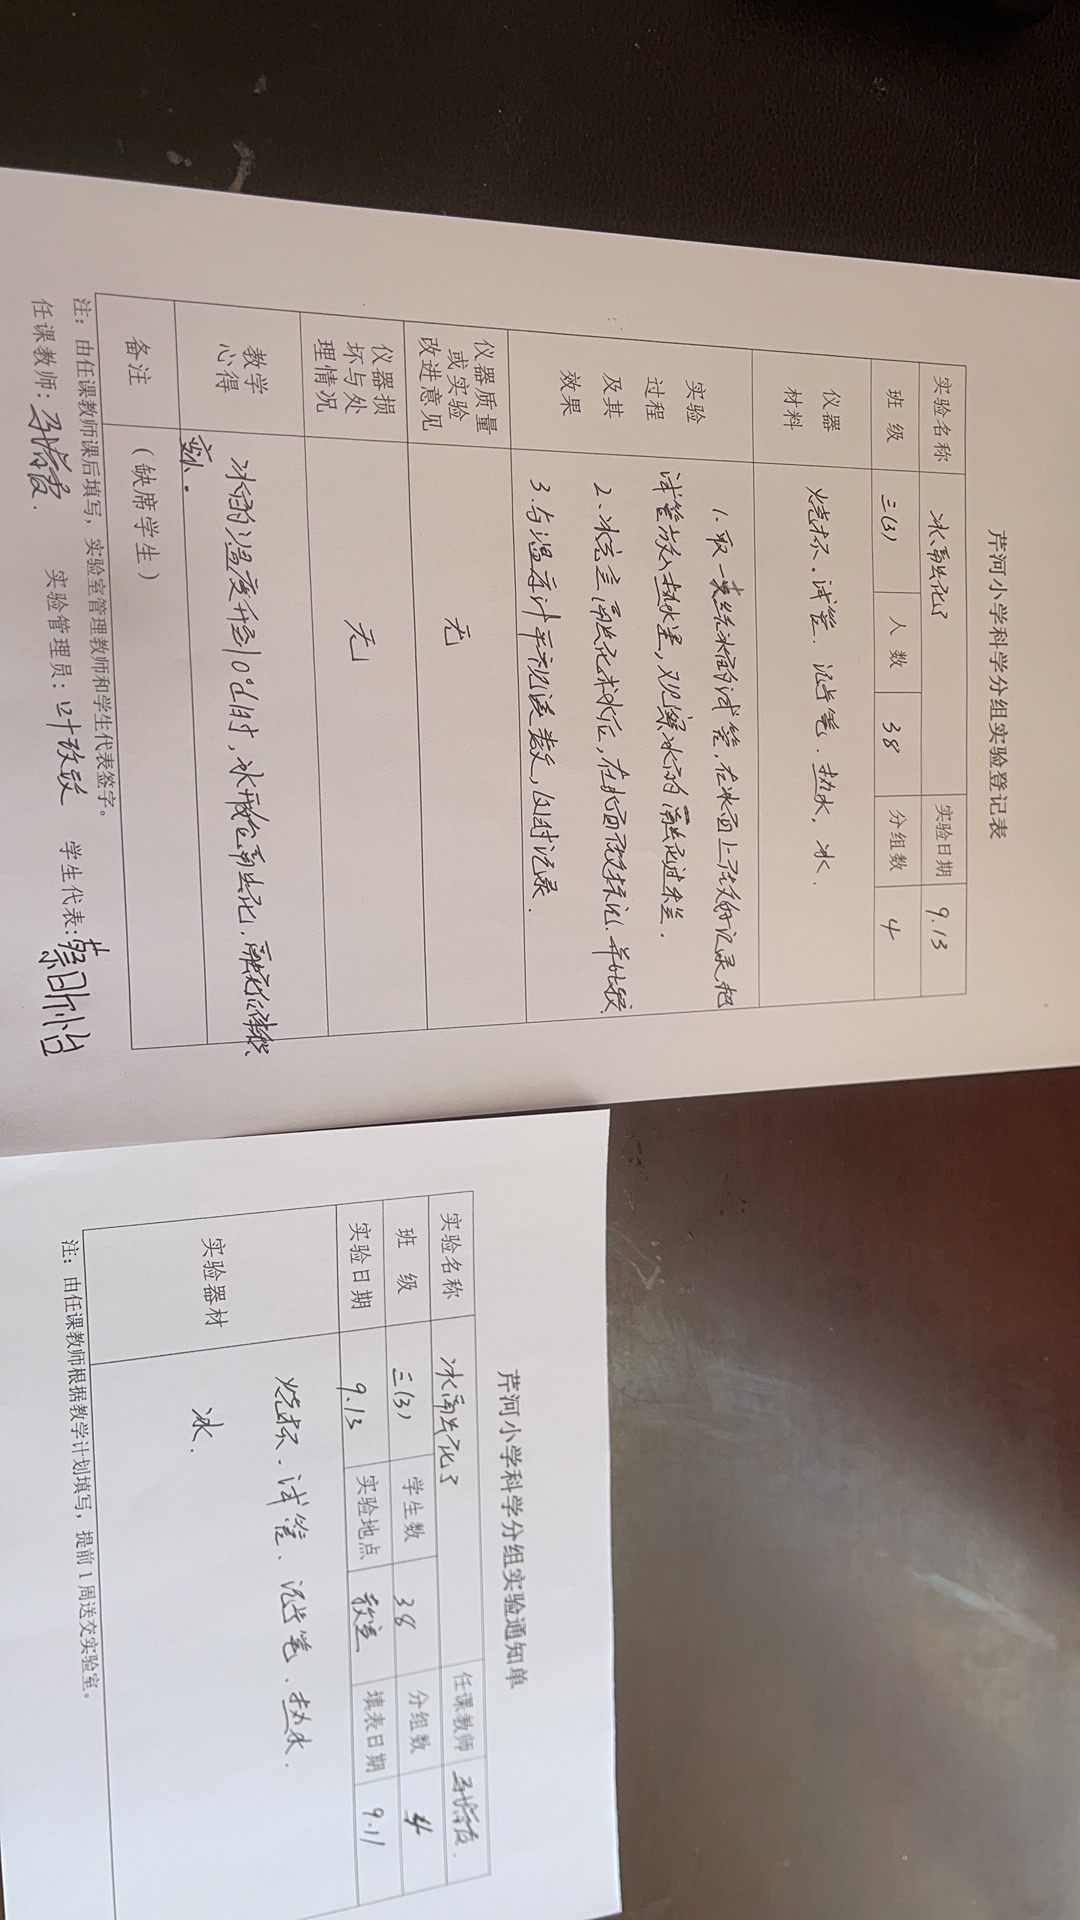 芹河小学科学分组实验登记表
实验名称 冰融化了 实验日期 9.13
班 级 三(3) 人 数 38 分组数 4
仪器材料 烧杯、试管、记号笔、热水、冰.
实验过程及其效果
1. 取一支结冰的试管,在冰面上 记录,把
试管放入热水里,观察冰的融化过程.
2、冰完全融化成水后,在水面 标记.并比较
3.与温度计平视读数,及时记录.
仪器质量或实验改进意见 无
仪器损坏与处理情况 无
教学心得 冰的温度升到0℃时,冰 会融化,融化后体积
变小.
备注 (缺席学生)
注:由任课教师课后填写,实验室管理教师和学生代表签字。
任课教师: 实验管理员: 学生代表:
芹河小学科学分组实验通知单
实验名称 冰融化了 任课教师
班 级 三(3) 学生数 38 分组数 4
实验日期 9.13 实验地点 教室 填表日期 9.11
实验器材 烧杯、试管、记号笔、热水.
冰.
注:由任课教师根据教学计划填写,提前1周送交实验室。